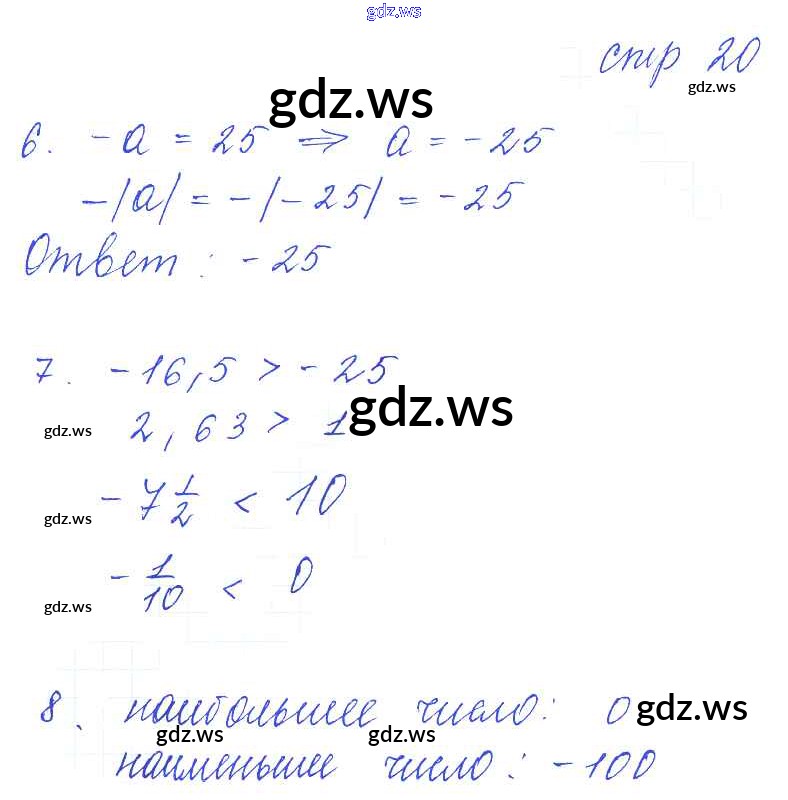 gdz.ws
стр 20
gdz.ws
gdz.ws
6. -a = 25 ⇒ a = -25
-|a| = -|-25| = -25
Ответ: -25
7. -16,5 > -25
gdz.ws
gdz.ws 2,63 > 1
gdz.ws -7 1/2 < 10
gdz.ws -1/10 < 0
8. наибольшее число: 0 gdz.ws
gdz.ws gdz.ws
наименьшее число: -100